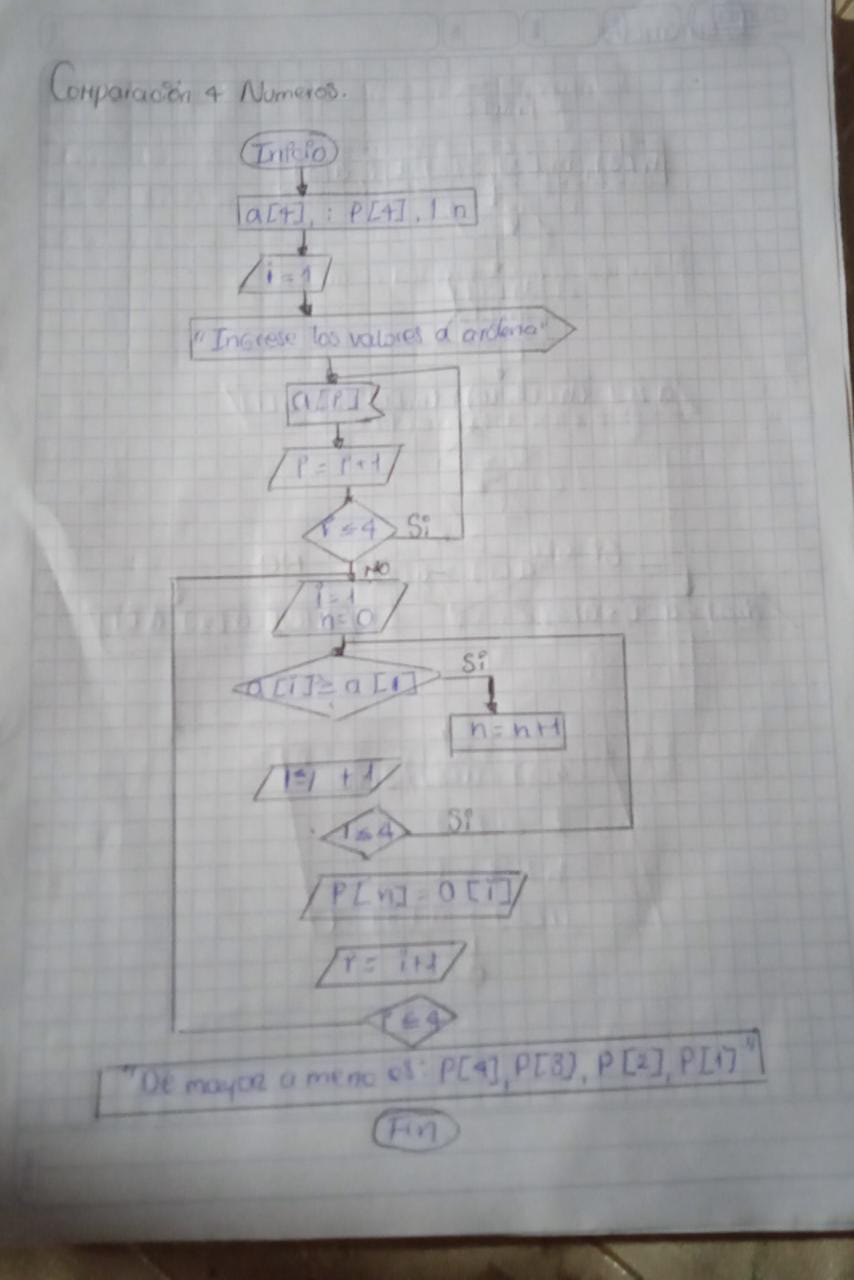 Comparación 4 Numeros.
Inicio
a[4], : P[4], | n
i = 1
"Ingrese los valores a ordena"
a[i]
i = i+1
i ≤ 4 Si
NO
i=1
n=0
Si
a[i] ≥ a[1]
n=n+1
i=i +1
i≤4 Si
P[n] = a[i]
i = i+1
i ≤ 4
"De mayor a meno es: P[4], P[3], P[2], P[1]"
Fin